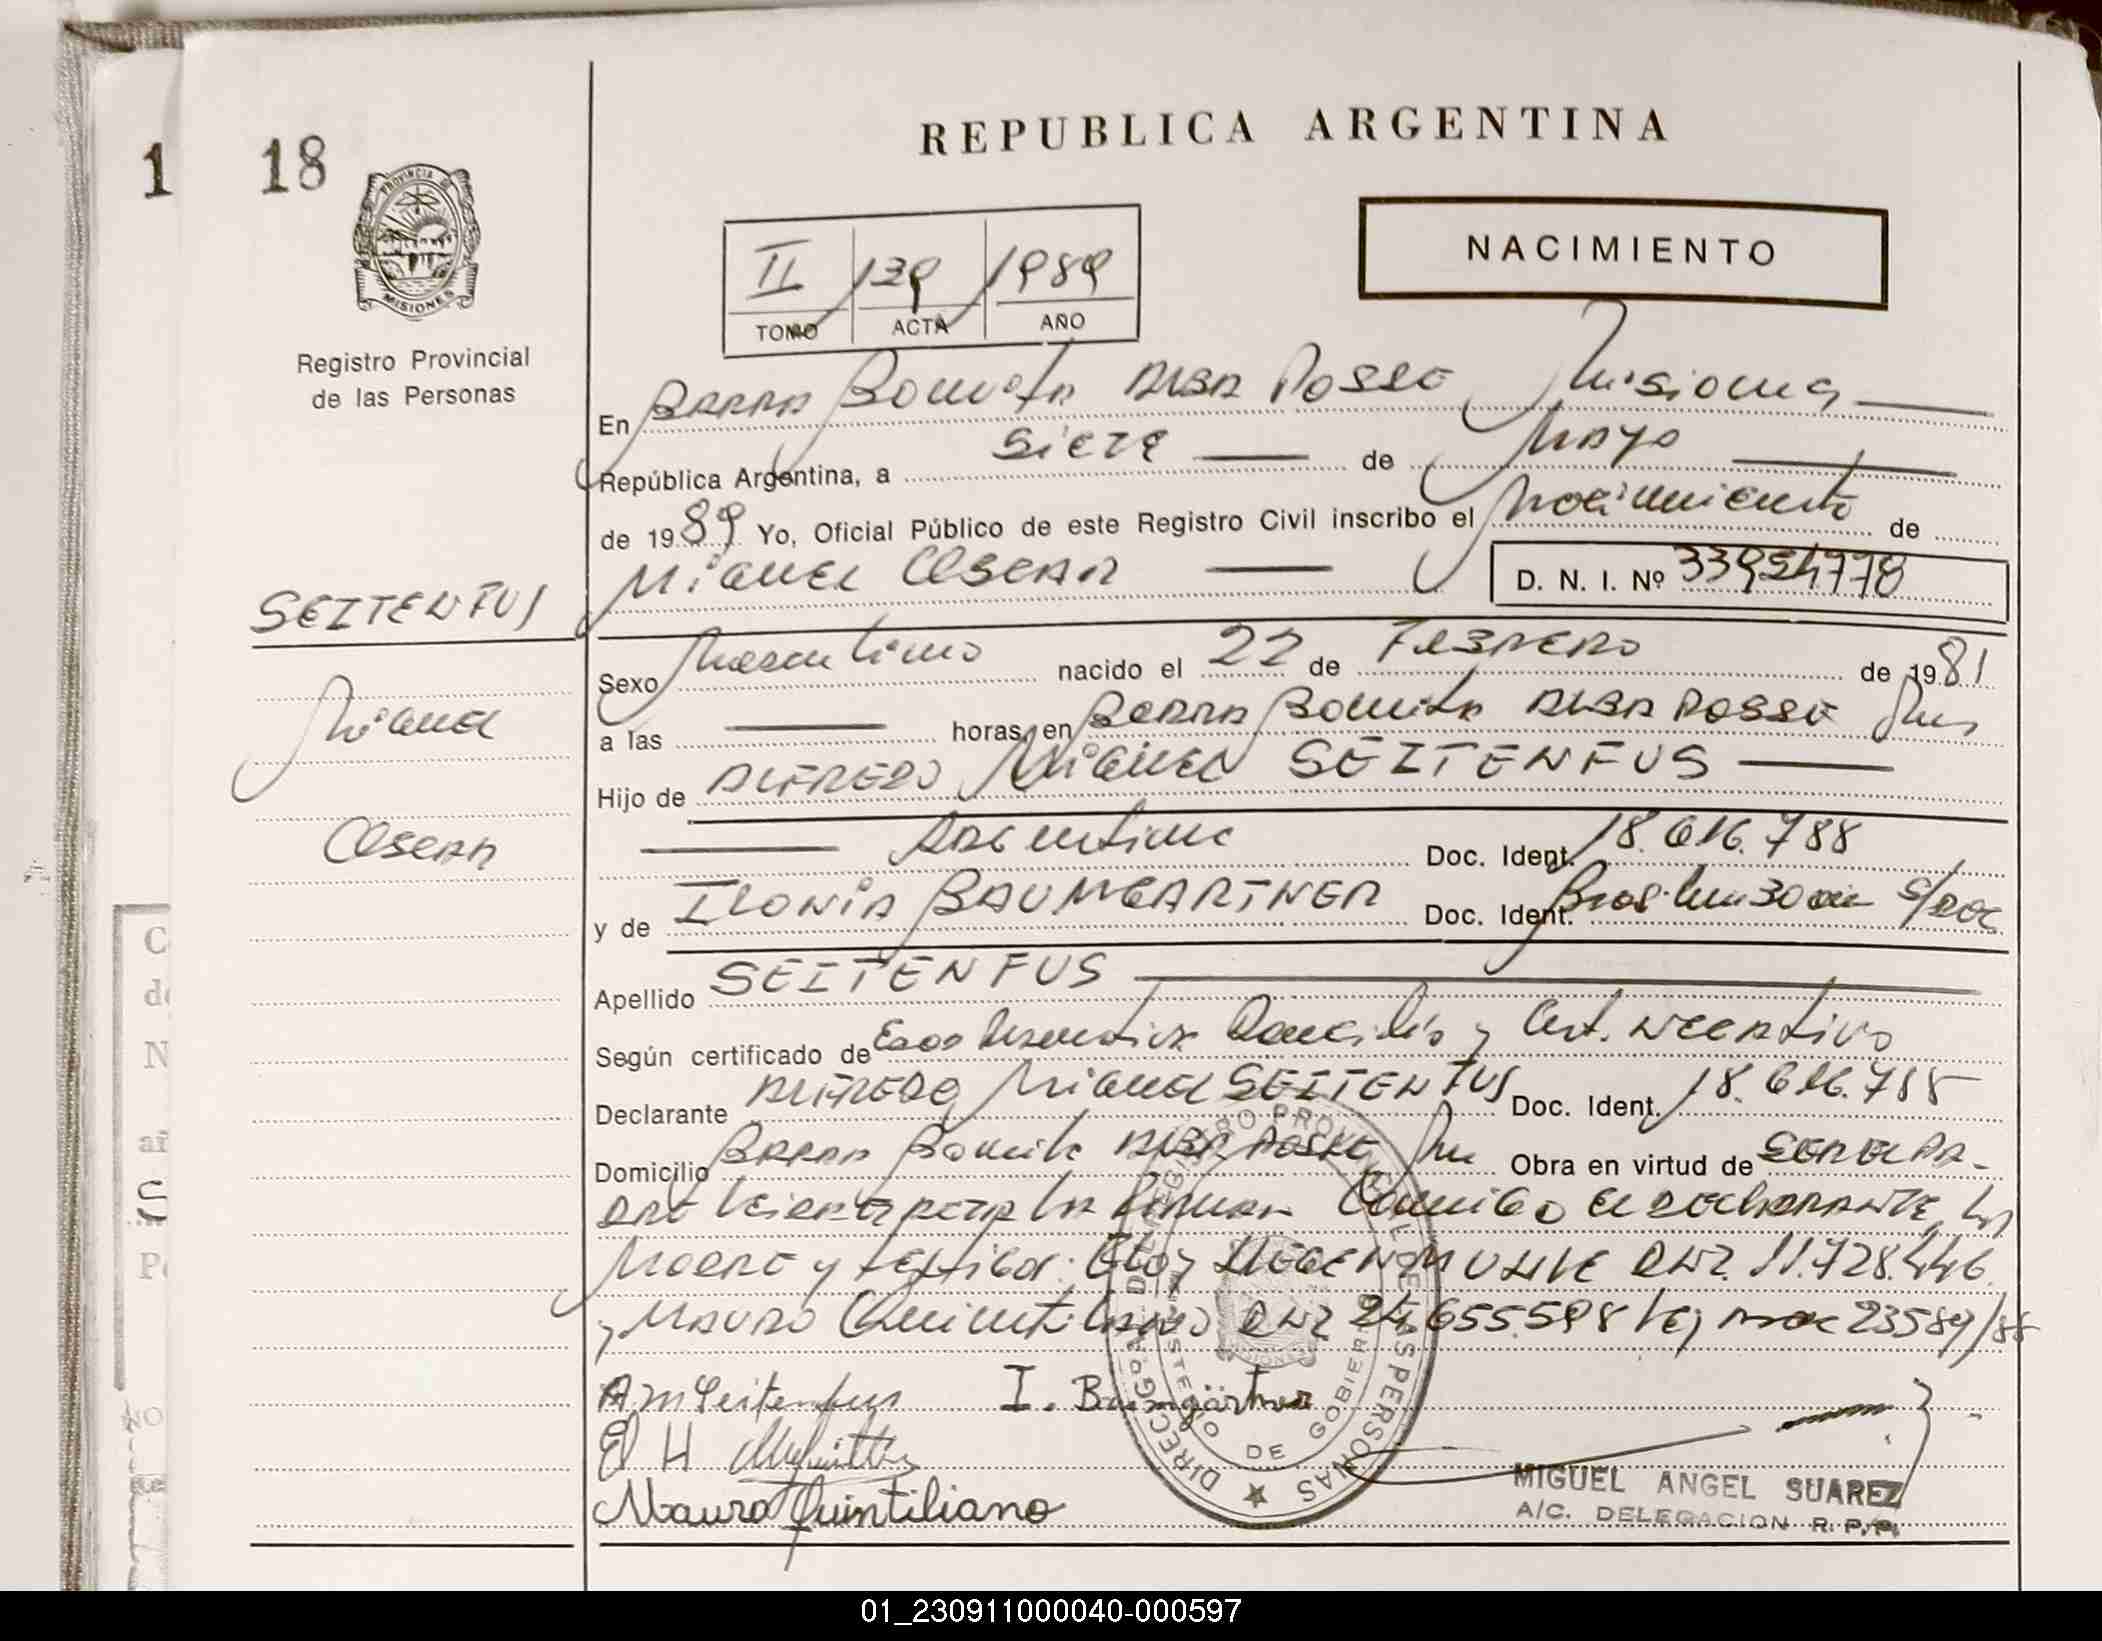 1
18
PROVINCIA DE
MISIONES
Registro Provincial
de las Personas
REPUBLICA ARGENTINA
NACIMIENTO
II 139 1989
TOMO ACTA AÑO
En BARRA Bonita ALBA POSSE Misiones
República Argentina, a SIETE de Mayo
de 1989 Yo, Oficial Público de este Registro Civil inscribo el Nacimiento de
MIGUEL OSCAR D. N. I. Nº 33954778
SEITENFUS
Miguel
OSCAR
Sexo Masculino nacido el 22 de FEBRERO de 1981
a las horas, en BARRA Bonita ALBA POSSE Mis
Hijo de ALFREDO Miguel SEITENFUS
Argentino Doc. Ident. 18.616.788
y de ILONIA BAUMGARTNER Doc. Ident. 30 S/DOC
Apellido SEITENFUS
Según certificado de Domicilio y Cert. NEGATIVO
Declarante ALFREDO Miguel SEITENFUS Doc. Ident. 18.616.788
Domicilio BARRA Bonita ALBA POSSE Obra en virtud de SER EL PA-
DRE Leida el acta la firman Conmigo el DECLARANTE, la
Madre y testigos: Eloy DNI. 11.728.446
y MAURO Quintiliano DNI 24.655.598 23589/88
A M Seitenfus I. Baumgärtner
El H
Mauro Quintiliano
DIRECC. GRAL. DEL REGISTRO PROVINCIAL DE LAS PERSONAS
MINISTERIO DE GOBIERNO
MISIONES
MIGUEL ANGEL SUAREZ
A/C. DELEGACION R. P. P.
01_230911000040-000597